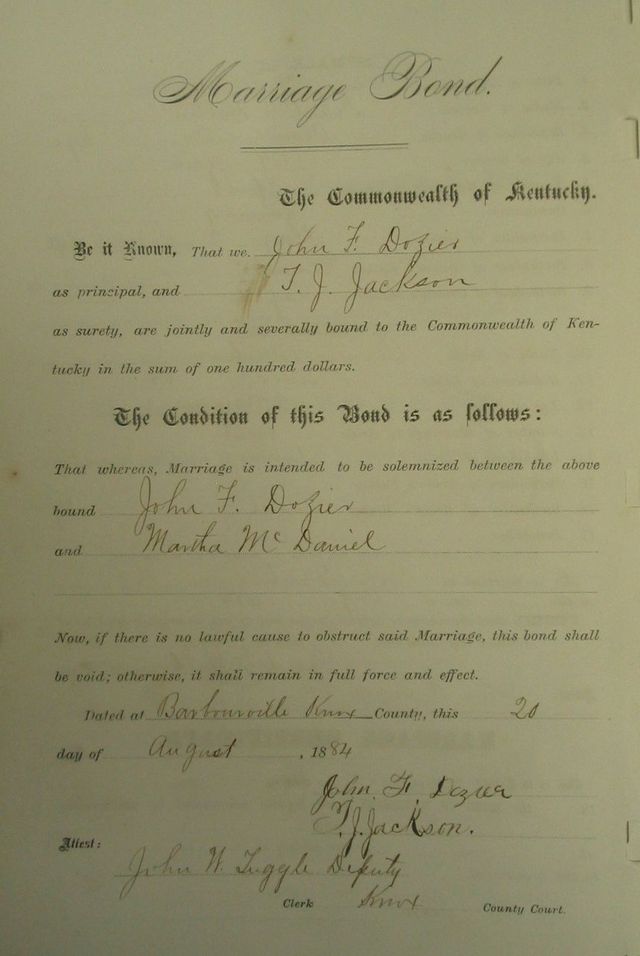 Marriage Bond.
The Commonwealth of Kentucky.
Be it Known, That we. John F. Dozier
as principal, and T. J. Jackson
as surety, are jointly and severally bound to the Commonwealth of Ken-
tucky in the sum of one hundred dollars.
The Condition of this Bond is as follows:
That whereas, Marriage is intended to be solemnized between the above
bound John F. Dozier
and Martha Mc Daniel
Now, if there is no lawful cause to obstruct said Marriage, this bond shall
be void; otherwise, it shall remain in full force and effect.
Dated at Barbourville Knox County, this 20
day of August , 1884
John. F. Dozier
T. J. Jackson.
Attest:
John W. Tuggle Deputy
Clerk Knox County Court.